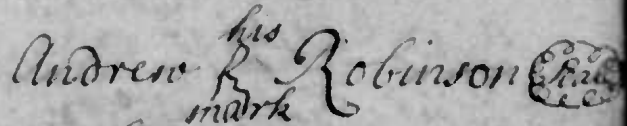 his
Andrew R Robinson Seal
mark